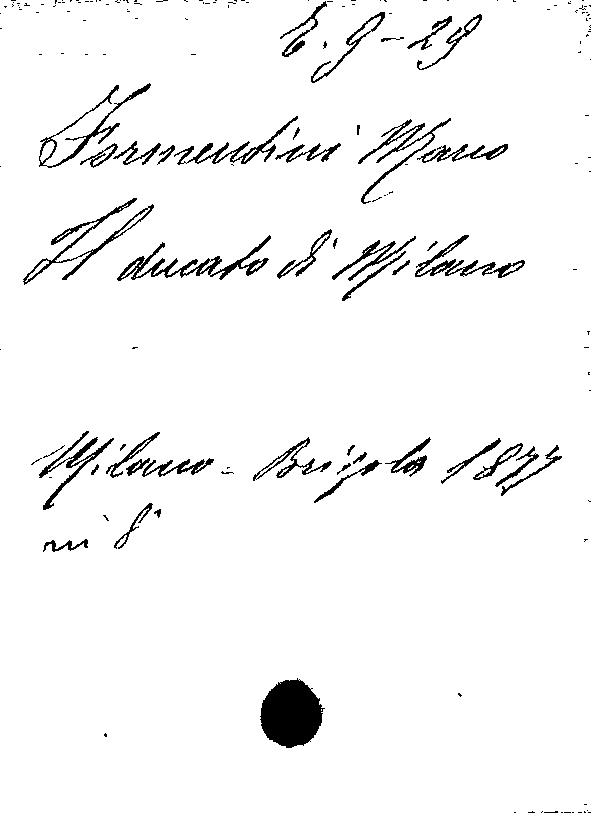 E. 9-29
Formentini Marco
Il ducato di Milano
Milano - Brigola 1877
in 8°